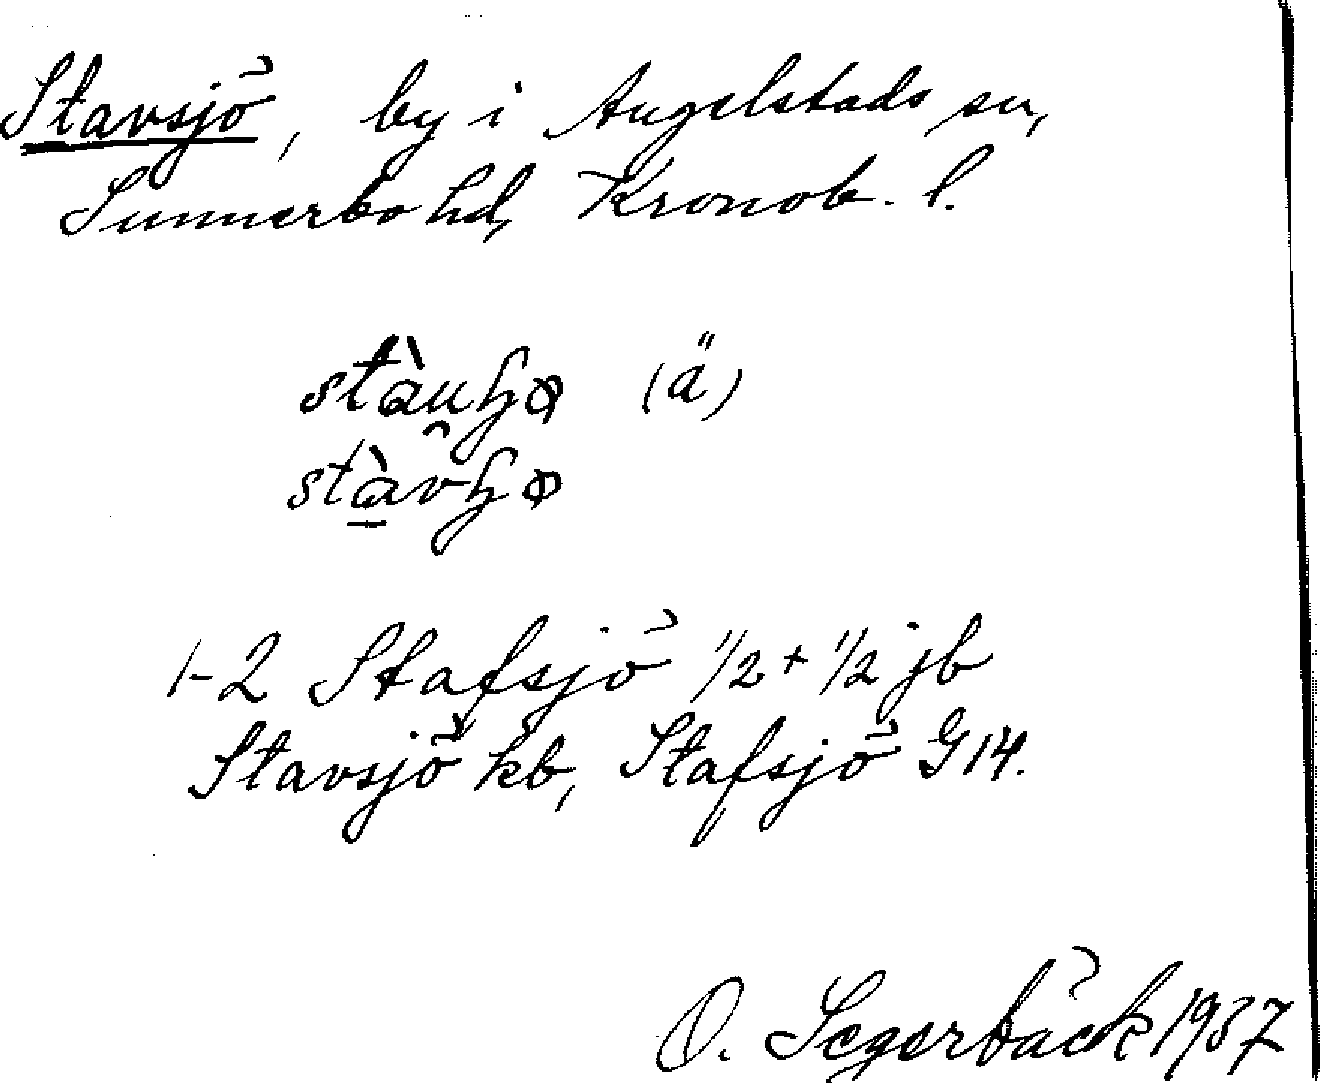 Stavsjö, by i Angelstads sn,
Sunnerbo hd, Kronob. l.
(ä)
1-2 Stafsjö 1/2 + 1/2 jb
Stavsjö kb, Stafsjö G14.
O. Segerbäck 1937